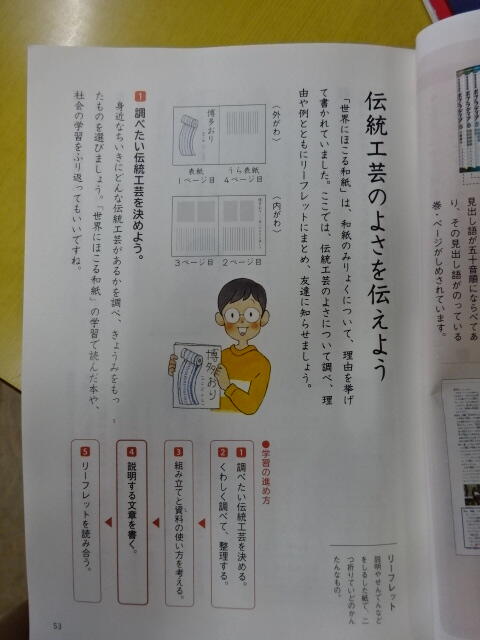 見出し語が五十音順にならべてあ
り、その見出し語がのっている
巻・ページがしめされています。
伝統工芸のよさを伝えよう
「世界にほこる和紙」は、和紙のみりょくについて、理由を挙げ
て書かれていました。ここでは、伝統工芸のよさについて調べ、理
由や例とともにリーフレットにまとめ、友達に知らせましょう。
リーフレット
説明やせんでんなど
をしるした紙で、二
つ折りていどのかん
たんなもの。
〈外がわ〉
博多おり
表紙
1ページ目
うら表紙
4ページ目
〈内がわ〉
3ページ目
2ページ目
博多おり
1 調べたい伝統工芸を決めよう。
身近なちいきにどんな伝統工芸があるかを調べ、きょうみをもっ
たものを選びましょう。「世界にほこる和紙」の学習で読んだ本や、
社会の学習をふり返ってもいいですね。
●学習の進め方
1 調べたい伝統工芸を決める。
2 くわしく調べて、整理する。
3 組み立てと資料の使い方を考える。
4 説明する文章を書く。
5 リーフレットを読み合う。
53